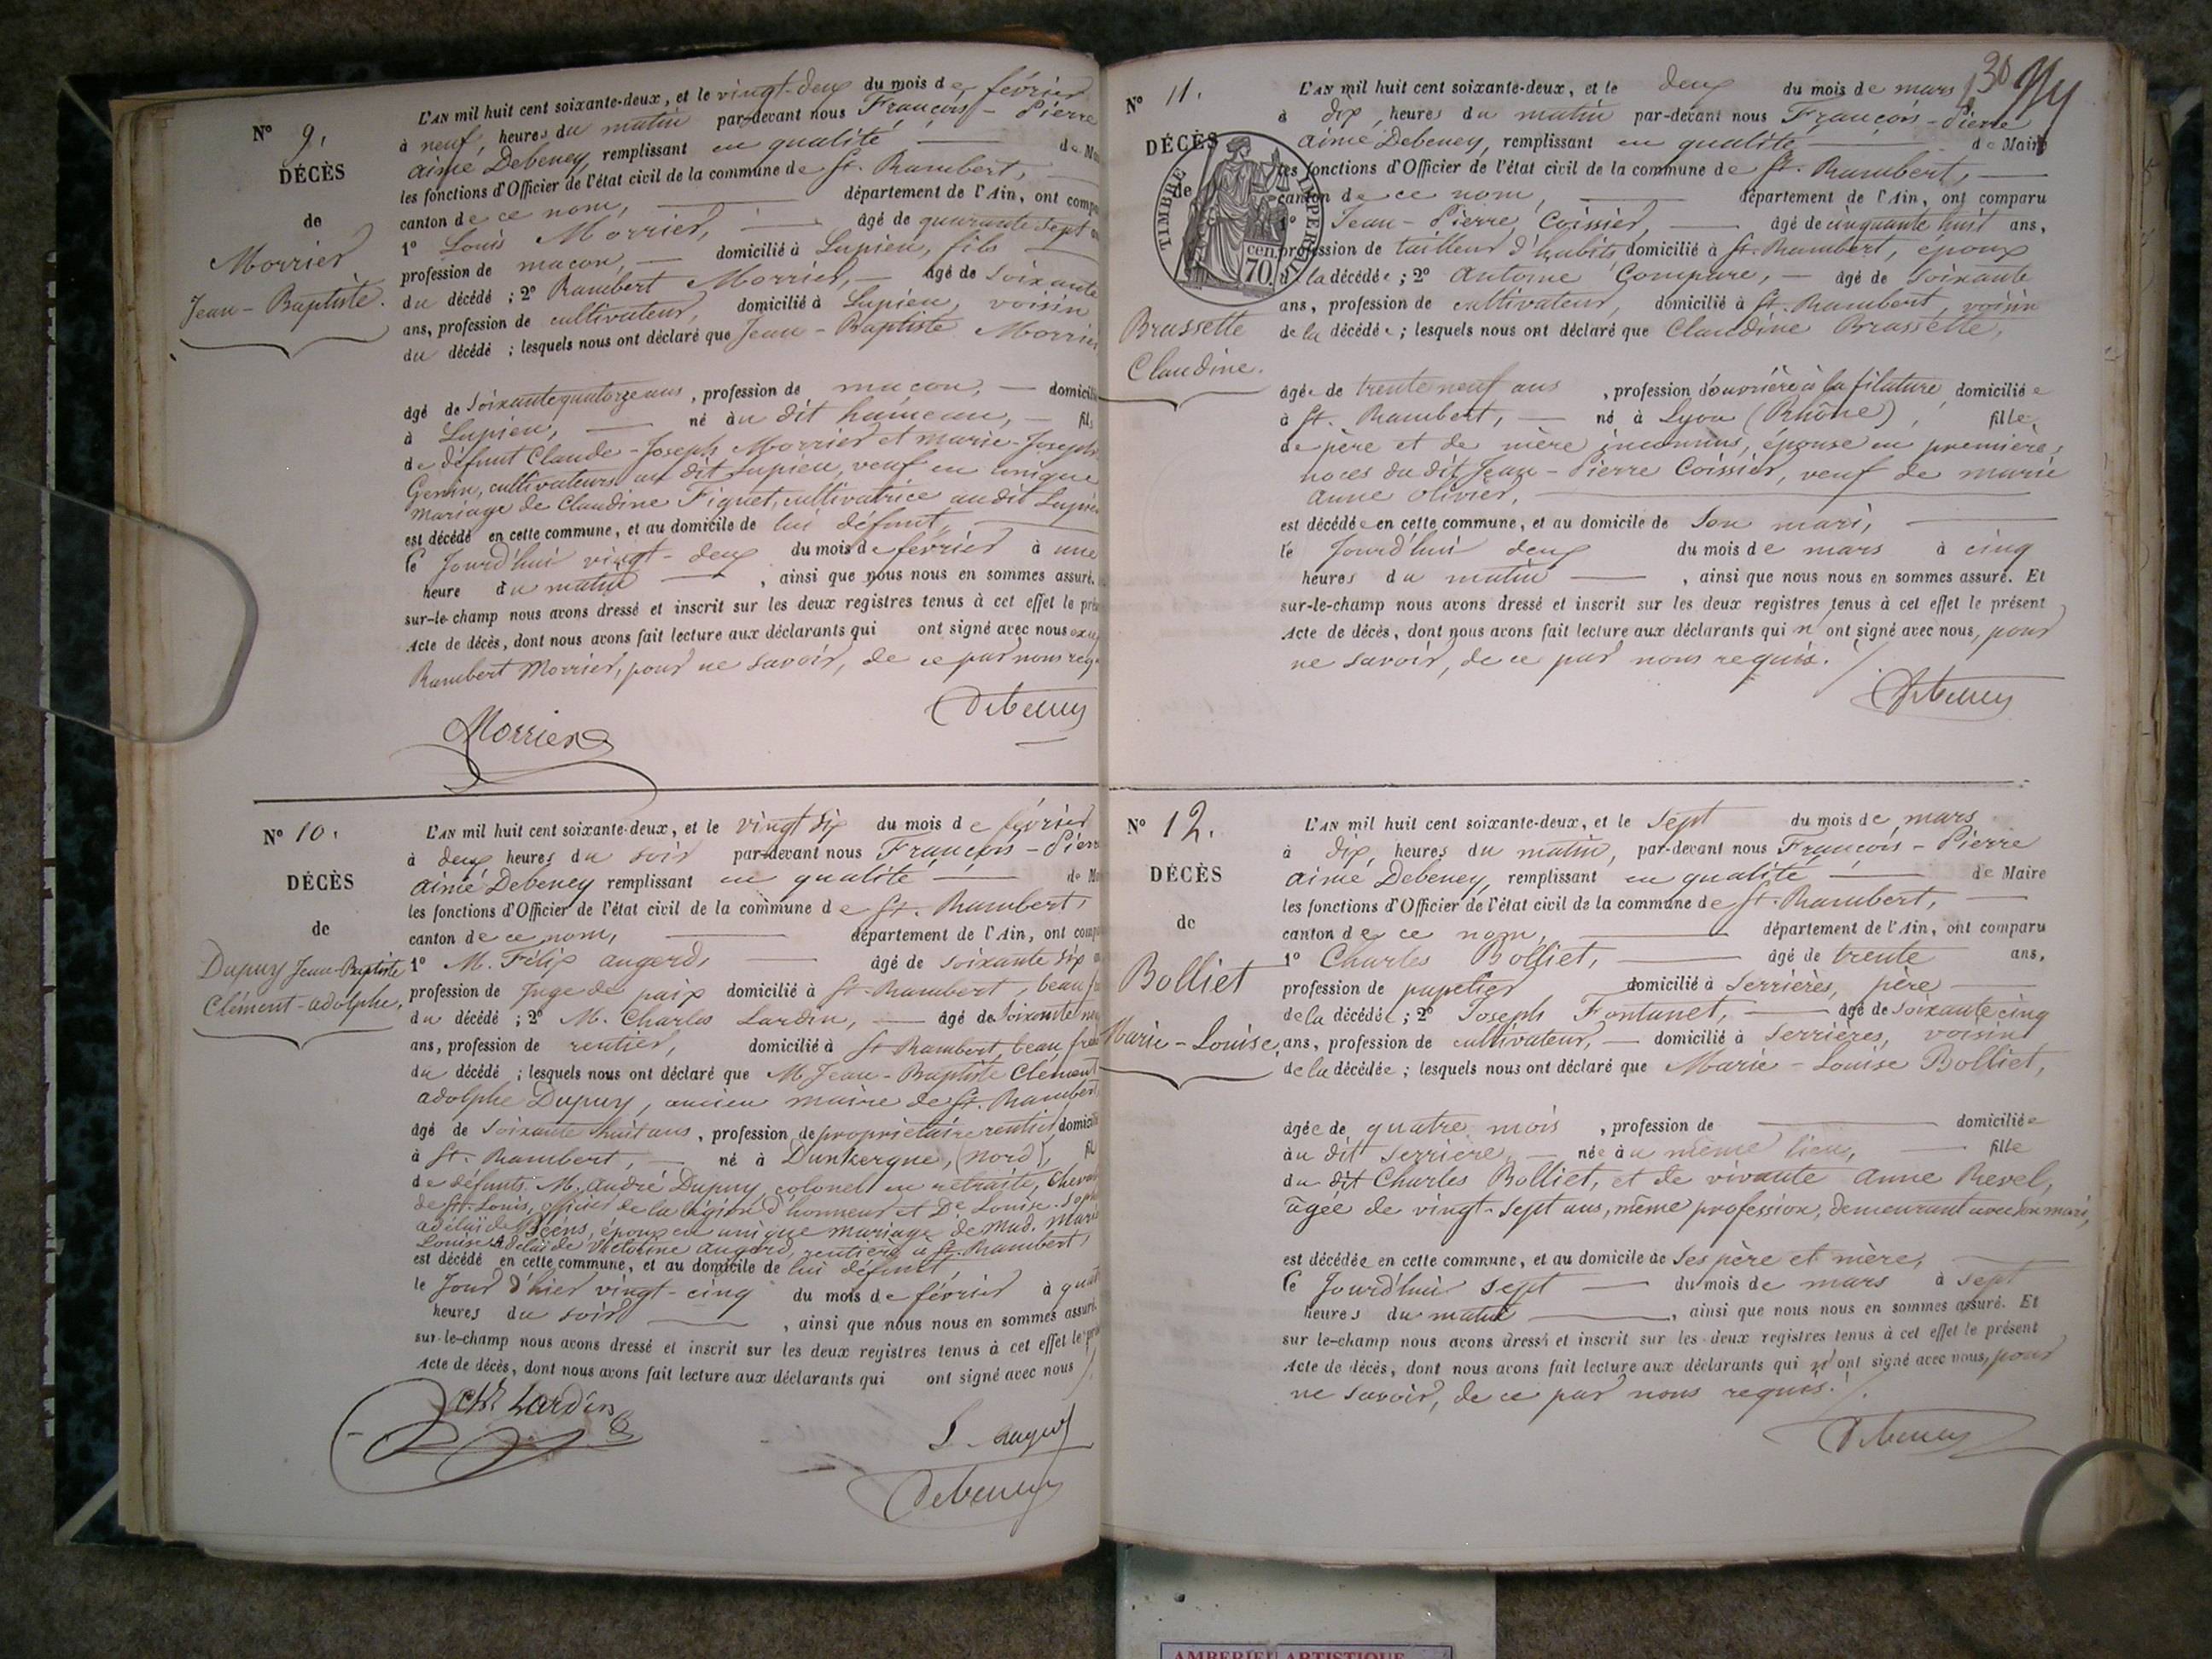 N° 9.
DÉCÈS
de
Morrier
Jean-Baptiste.
L'AN mil huit cent soixante-deux, et le vingt-deux du mois de février
à neuf, heures du matin par-devant nous François-Pierre
aimé Debeney, remplissant en qualité de
les fonctions d'Officier de l'état civil de la commune de St. Rambert,
canton de ce nom, département de l'Ain, ont
1° Louis Morrier, âgé de quarante sept
profession de maçon, domicilié à Lupieu, fils
du décédé ; 2° Rambert Morrier, âgé de soixante
ans, profession de cultivateur, domicilié à Lupieu, voisin
du décédé ; lesquels nous ont déclaré que Jean-Baptiste Morrier
âgé de soixante quatorze ans, profession de maçon,
à Lupieu, né au dit hameau,
de défunt Claude-Joseph Morrier et marie-Joseph
Genin, cultivateurs au dit Lupieu, veuf en unique
mariage de Claudine Fiquet, cultivatrice au dit Lupieu
est décédé en cette commune, et au domicile de lui défunt,
le Jourd'hui vingt-deux du mois de février à une
heure du matin, ainsi que nous nous en sommes assuré.
sur-le-champ nous avons dressé et inscrit sur les deux registres tenus à cet effet le
Acte de décès, dont nous avons fait lecture aux déclarants qui ont signé avec nous
Rambert Morrier, pour ne savoir, de ce par nous
Debeney
Morrier
N° 10.
DÉCÈS
de
Dupuy Jean-Baptiste
Clément-adolphe.
L'AN mil huit cent soixante-deux, et le vingt six du mois de février
à deux heures du soir par-devant nous François-Pierre
aimé Debeney remplissant en qualité de
les fonctions d'Officier de l'état civil de la commune de St. Rambert,
canton de ce nom, département de l'Ain, ont
1° M. Félix augerd, âgé de soixante six
profession de Juge de paix domicilié à St-Rambert, beau
du décédé ; 2° M. Charles Lardin, âgé de soixante
ans, profession de rentier, domicilié à St Rambert, beau
du décédé ; lesquels nous ont déclaré que M. Jean-Baptiste Clément
adolphe Dupuy, ancien maire de St. Rambert
âgé de soixante huit ans, profession de propriétaire rentier,
à St. Rambert, né à Dunkerque, (nord),
de défunts M. André Dupuy, colonel en retraite,
de St. Louis, officier de la légion d'honneur et De Louise
adélaïde, époux en unique mariage de mad. Marie
Louise adélaïde Victorine augerd, rentière à St. Rambert,
est décédé en cette commune, et au domicile de lui défunt,
le Jour d'hier vingt-cinq du mois de février à
heures du soir, ainsi que nous nous en sommes assuré.
sur-le-champ nous avons dressé et inscrit sur les deux registres tenus à cet effet le
Acte de décès, dont nous avons fait lecture aux déclarants qui ont signé avec nous
Lardin
Debeney
130
N° 11.
DÉCÈS
de
TIMBRE IMPERIAL
70 cen.
Brassette
Claudine.
L'AN mil huit cent soixante-deux, et le deux du mois de mars
à dix, heures du matin par-devant nous François-Pierre
aimé Debeney, remplissant en qualité de Maire
les fonctions d'Officier de l'état civil de la commune de St. Rambert,
canton de ce nom, département de l'Ain, ont comparu
1° Jean-Pierre Coissier, âgé de cinquante huit ans,
profession de tailleur d'habits, domicilié à St. Rambert, époux
de la décédée ; 2° Antoine Compare, âgé de soixante
ans, profession de cultivateur, domicilié à St. Rambert, voisin
de la décédée ; lesquels nous ont déclaré que Claudine Brassette,
âgée de trente neuf ans, profession d'ouvrière à la filature, domiciliée
à St. Rambert, né à Lyon (Rhône), fille
de père et de mère inconnus, épouse en premières
noces du dit Jean-Pierre Coissier, veuf de marie
anne olivier,
est décédée en cette commune, et au domicile de son mari,
le Jourd'hui deux du mois de mars à cinq
heures du matin, ainsi que nous nous en sommes assuré. Et
sur-le-champ nous avons dressé et inscrit sur les deux registres tenus à cet effet le présent
Acte de décès, dont nous avons fait lecture aux déclarants qui n'ont signé avec nous, pour
ne savoir, de ce par nous requis.
Debeney
N° 12.
DÉCÈS
de
Bolliet
Marie-Louise,
L'AN mil huit cent soixante-deux, et le sept du mois de mars
à dix, heures du matin, par-devant nous François-Pierre
aimé Debeney, remplissant en qualité de Maire
les fonctions d'Officier de l'état civil de la commune de St. Rambert,
canton de ce nom, département de l'Ain, ont comparu
1° Charles Bolliet, âgé de trente ans,
profession de papetier domicilié à Serrières, père
de la décédée ; 2° Joseph Fontanet, âgé de soixante cinq
ans, profession de cultivateur, domicilié à Serrières, voisin
de la décédée ; lesquels nous ont déclaré que Marie-Louise Bolliet,
âgée de quatre mois, profession de domiciliée
au dit serriere, née au même lieu, fille
du dit Charles Bolliet, et de vivante anne Revel,
âgée de vingt-sept ans, même profession, demeurant avec son mari,
est décédée en cette commune, et au domicile de ses père et mère,
le Jourd'hui sept du mois de mars à sept
heures du matin, ainsi que nous nous en sommes assuré. Et
sur le-champ nous avons dressé et inscrit sur les deux registres tenus à cet effet le présent
Acte de décès, dont nous avons fait lecture aux déclarants qui n'ont signé avec nous, pour
ne savoir, de ce par nous requis.
Debeney
AMBERIEU ARTISTIQUE